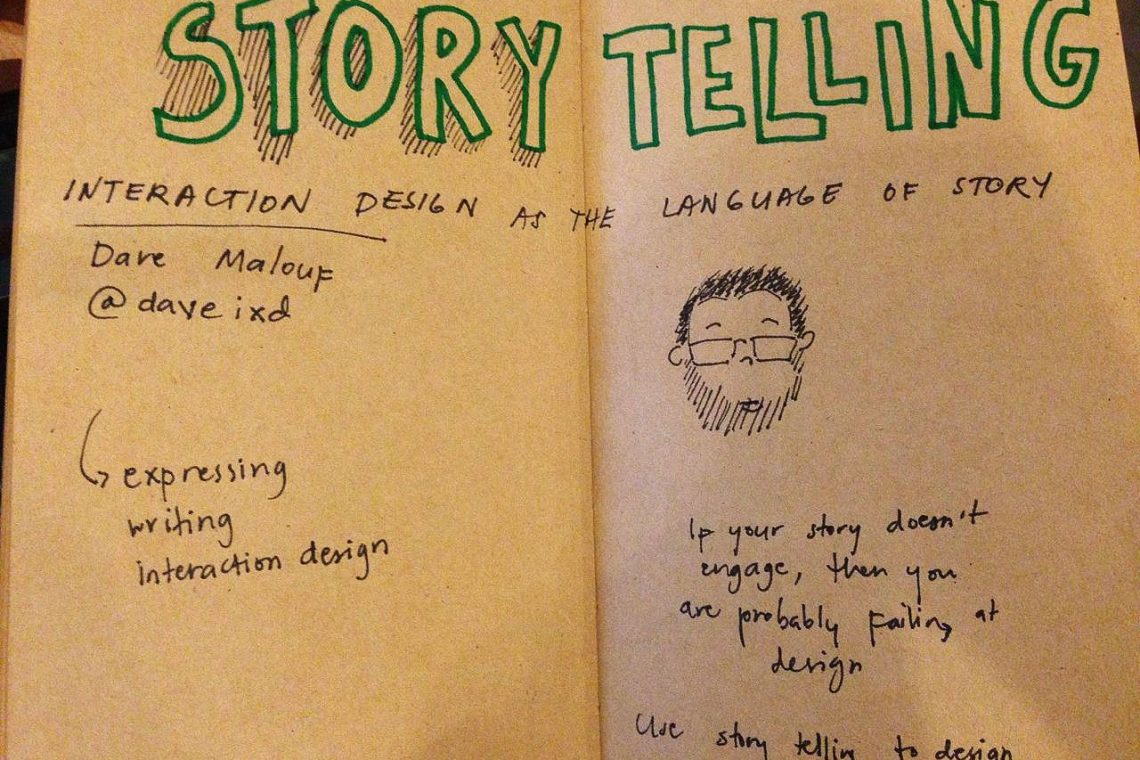 STORY TELLING
INTERACTION DESIGN AS THE LANGUAGE OF STORY
Dave Malouf
@daveixd
expressing
writing
interaction design
If your story doesn't
engage, then you
are probably failing at
design
Use story telling to design